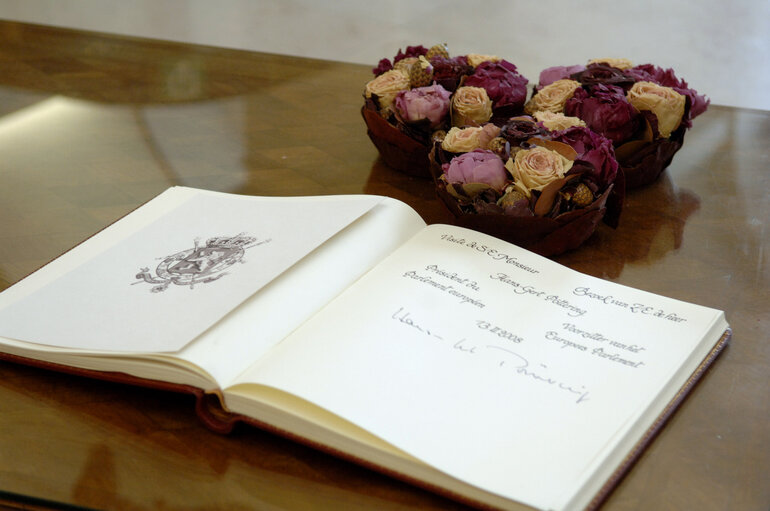 Visite de S.E. Monsieur
Bezoek van Z.E. de heer
Hans-Gert Pöttering
Président du
Parlement européen
Voorzitter van het
Europees Parlement
13.II.2008